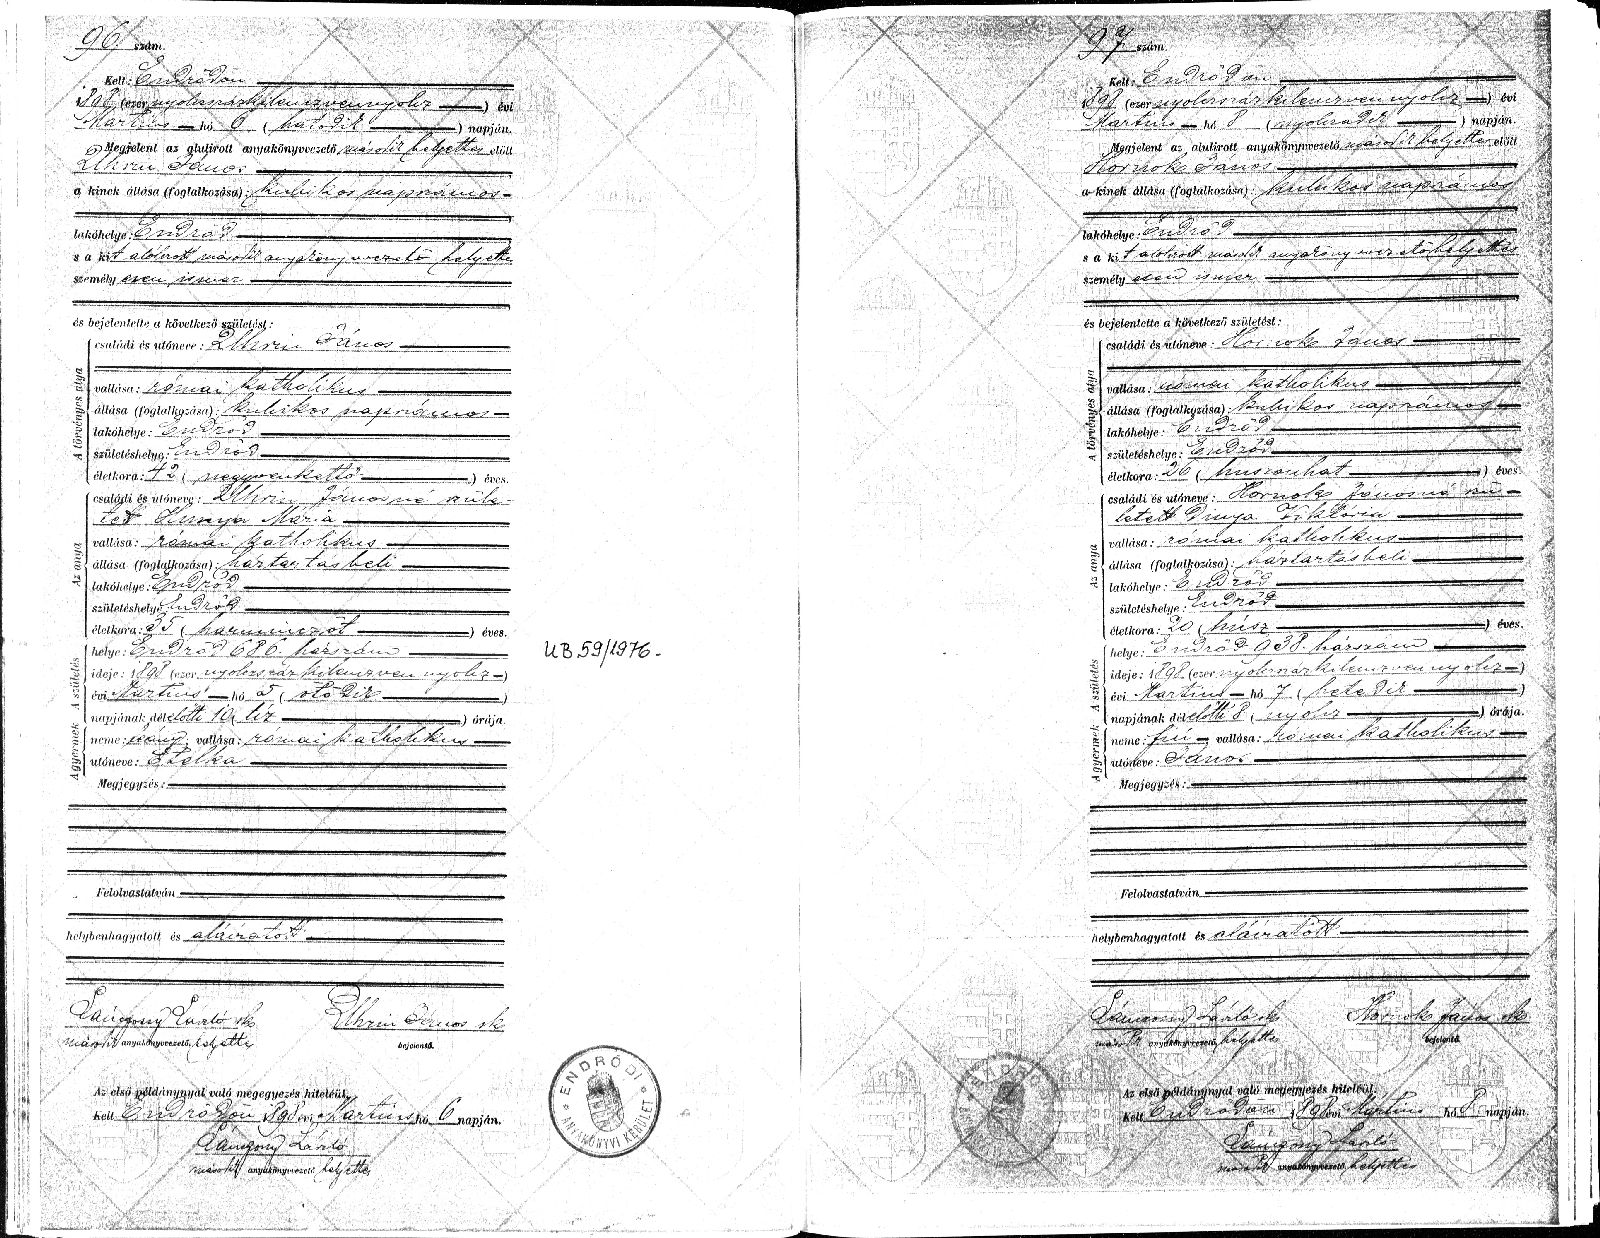 96 szám.
Kelt: Endrődön
1898 (ezer nyolczszázkilenczvennyolcz) évi
Martius hó 6 (hatodik) napján.
Megjelent az alulirott anyakönyvezető második helyettes előtt
Uhrin János
a kinek állása (foglalkozása): kubikos napszámos
lakóhelye: Endrőd
s a kit alólirott második anyakönyvvezető helyettes
személyesen ismer
és bejelentette a következő születést:
A törvényes atya
családi és utóneve: Uhrin János
vallása: római katholikus
állása (foglalkozása): kubikos napszámos
lakóhelye: Endrőd
születéshelye: Endrőd
életkora: 42 (negyvenkettő) éves.
Az anya
családi és utóneve: Uhrin Jánosné szüle-
tett Hunya Mária
vallása: római katholikus
állása (foglalkozása): háztartásbeli
lakóhelye: Endrőd
születéshelye: Endrőd
életkora: 35 (harminczöt) éves.
A születés
helye: Endrőd 686. házszám
ideje: 1898 (ezer nyolczszázkilenczvennyolcz)
évi Martius hó 5 (ötödik
napjának délelőtti 10 (tiz) órája.
A gyermek
neme: leány; vallása: római katholikus
utóneve: Etelka
Megjegyzés:
Felolvastatván
helybenhagyatott és aláiratott
László sk
második anyakönyvezető helyettes
Uhrin János sk
bejelentő.
Az első példánynyal való megegyezés hiteléül.
Kelt Endrődön 1898 évi Martius hó 6 napján.
László
második anyakönyvezető helyettes
UB 59/1976.
ENDRŐDI ANYAKÖNYVI KERÜLET
97 szám.
Kelt: Endrődön
1898 (ezer nyolczszázkilenczvennyolcz) évi
Martius hó 8 (nyolczadik) napján.
Megjelent az alulirott anyakönyvezető második helyettes előtt
Hornok János
a kinek állása (foglalkozása): kubikos napszámos
lakóhelye: Endrőd
s a kit alólirott másodk anyakönyvvezető helyettes
személyesen ismer
és bejelentette a következő születést:
A törvényes atya
családi és utóneve: Hornok János
vallása: római katholikus
állása (foglalkozása): kubikos napszámos
lakóhelye: Endrőd
születéshelye: Endrőd
életkora: 26 (huszonhat) éves.
Az anya
családi és utóneve: Hornok Jánosné szü-
letett Dinya Viktória
vallása: római katholikus
állása (foglalkozása): háztartásbeli
lakóhelye: Endrőd
születéshelye: Endrőd
életkora: 20 (húsz) éves.
A születés
helye: Endrőd 938. házszám
ideje: 1898 (ezer nyolczszázkilenczvennyolcz)
évi Martius hó 7 (hetedik)
napjának délelőtti 8 (nyolcz) órája.
A gyermek
neme: fiú vallása: római katholikus
utóneve: János
Megjegyzés:
Felolvastatván
helybenhagyatott és aláiratott
László sk
második anyakönyvezető helyettes
Hornok János sk
bejelentő.
Az első példánynyal való megegyezés hiteléül.
Kelt Endrődön 1898 évi Martius hó 8 napján.
László
második anyakönyvezető helyettes